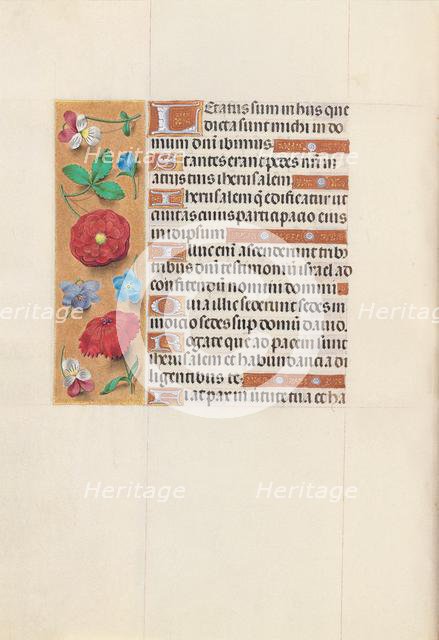 Letatus sum in hiis que
dicta sunt michi in do
mum dni ibimus.
Stantes erant pedes nri in
atriis tuis iherusalem.
Iherusalem que edificatur ut
civitas cuius participacio eius
in idipsum
Illuc eni ascenderunt tribu
tribus dni testimoniu israel ad
confitendu nomini domini
Quia illic sederunt sedes in
iudicio sedes sup domu david.
Rogate que ad pacem sunt
iherusalem et habundancia di
ligentibus te.
Fiat pax in virtute tua et ha
Heritage
Heritage
Heritage
Heritage
Heritage
Heritage
Heritage